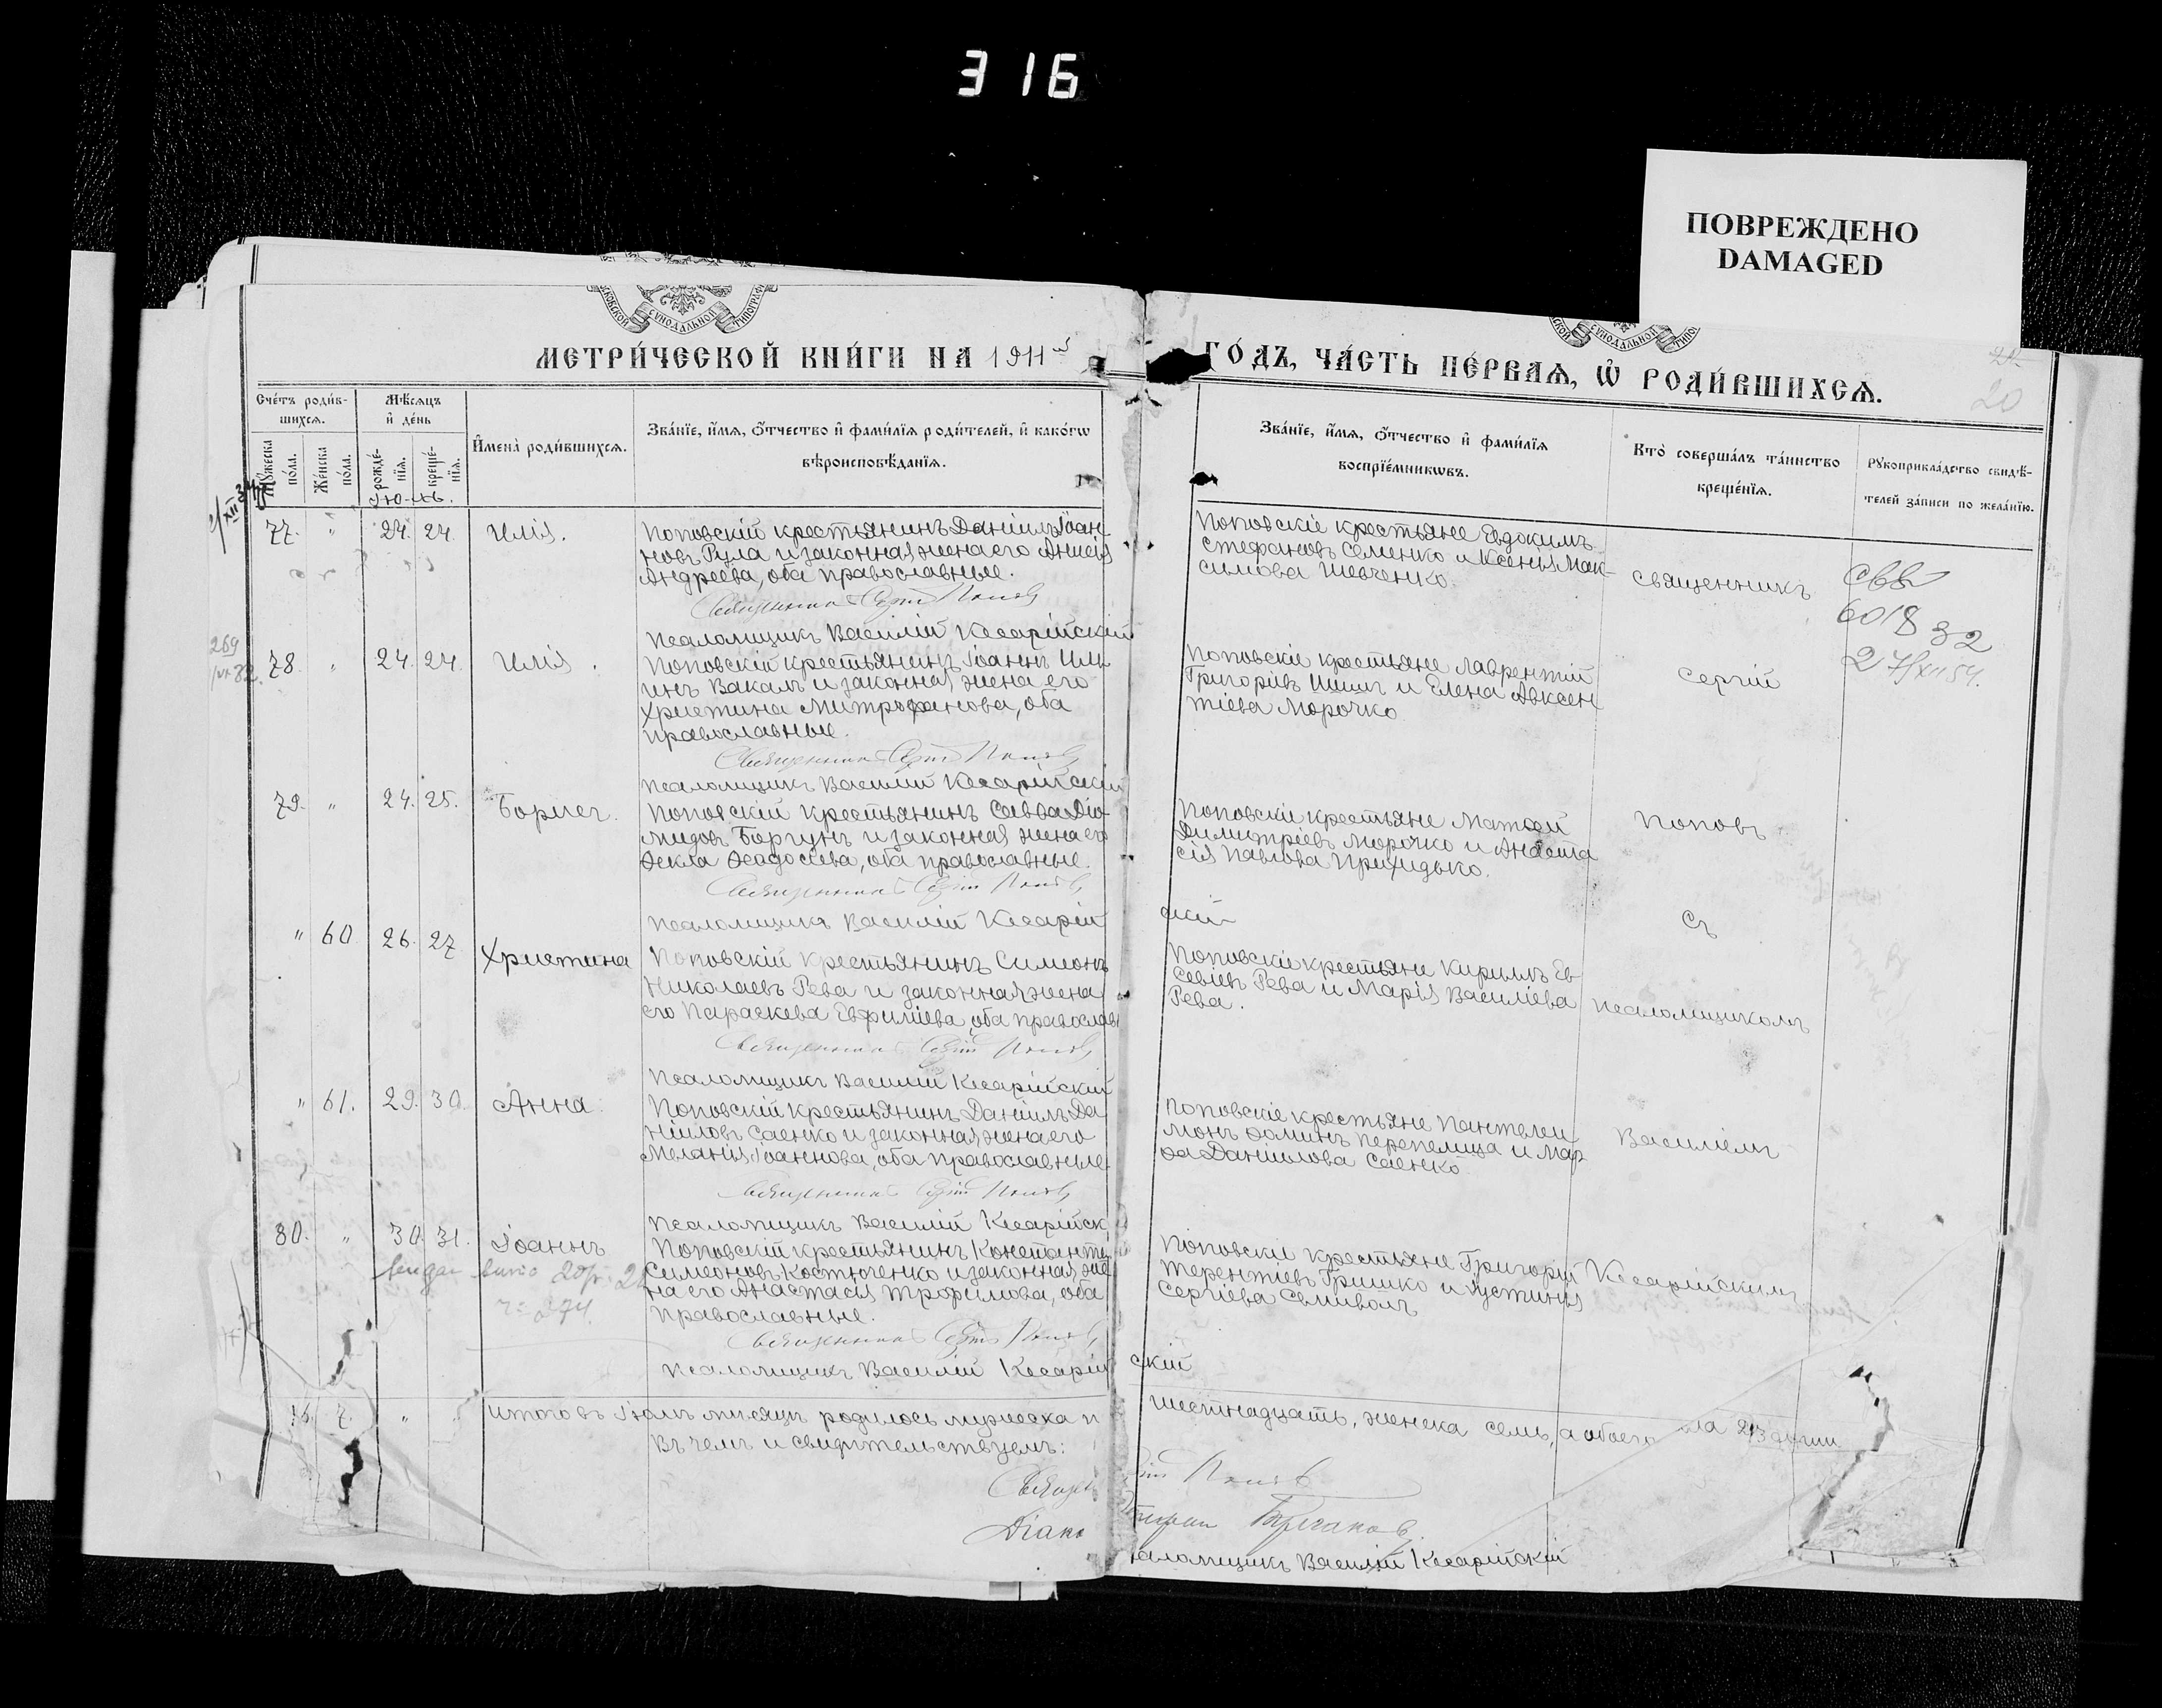 316
ПОВРЕЖДЕНО
DAMAGED
МЕТРИ́ЧЕСКОЙ КНИ́ГИ НА 1911й
ГО́ДЪ, ЧА́СТЬ ПЕ́РВАѦ, Ѡ҆ РОДИ́ВШИХСѦ.
20
Сче́тъ роди́в-
шихся.
Мѣ́сяцъ
и҆ де́нь
Мꙋ́жеска
по́ла.
Же́нска
по́ла.
рожде́-
нїя.
креще́-
нїя.
Іюль.
И҆мена̀ роди́вшихся.
Зва́нїе, и҆́мя, ѻ҆́тчество и҆ фами́лїя роди́телей, и҆ како́гѡ
вѣроисповѣ́данїя.
Зва́нїе, и҆́мя, ѻ҆́тчество и҆ фами́лїя
воспрїе́мникѡвъ.
Кто̀ соверша́лъ та́инство
креще́нїя.
Рꙋкоприкла́дство свидѣ́-
телей за́писи по жела́нїю.
77. " 24. 24. Илія.
Поповскій крестьянинъ Даніилъ Іоан-
новъ Рула и законная жена его Анисія
Андреева, оба православные.
Священникъ Сергій Поповъ
Псаломщикъ Василій Кесарійскій
Поповскіе крестьяне Евдокимъ
Стефановъ Семенко и Ксенія Мак-
симова Шевченко.
Священникъ
6018 32
27/XII 54.
269
78. " 24. 24. Илія.
Поповскій крестьянинъ Іоаннъ Иль-
инъ Вакалъ и законная жена его
Христина Митрофанова, оба
православные.
Священникъ Сергій Поповъ
Псаломщикъ Василій Кесарійскій
Поповскіе крестьяне Лаврентій
Григоріевъ Шишъ и Елена Авксен
тіева Морочко
Сергій
79. " 24. 25. Борисъ.
Поповскій крестьянинъ Савва Діо-
мидовъ Боргунъ и законная жена его
Ѳекла Ѳеодосіева, оба православные.
Священникъ Сергій Поповъ
Псаломщикъ Василій Кесарій
скій
Поповскіе крестьяне Матѳей
Димитріевъ Морочко и Анаста
сія Павлова Приходько.
Поповъ
съ
" 60 26. 27 Христина
Поповскій крестьянинъ Симеонъ
Николаевъ Рева и законная жена
его Параскева Евфиміева, оба православ
Священникъ Сергій Поповъ
Псаломщикъ Василій Кесарійскій
Поповскіе крестьяне Кириллъ Ев
севіевъ Рева и Марія Василіева
Рева.
псаломщикомъ
" 61. 29. 30. Анна.
Поповскій крестьянинъ Даніилъ Да
ніиловъ Саенко и законная жена его
Меланія Іоаннова, оба православные
Священникъ Сергій Поповъ
Псаломщикъ Василій Кесарійск
Поповскіе крестьяне Пантелеи
монъ Ѳоминъ Перепелица и Мар
ѳа Даніилова Саенко.
Василіемъ
80. " 30. 31. Іоаннъ
Поповскій крестьянинъ Константи
Симеоновъ Костюченко и законная же
на его Анастасія Трофимова, оба
православные.
Священникъ Сергій Поповъ
Псаломщикъ Василій Кесарій
скій
Поповскіе крестьяне Григорій
Терентіевъ Гришко и Іустинія
Сергіева Семиволъ
Кесарійскимъ
274.
16. 7. " " Итого въ Іюлѣ мѣсяцѣ родилось мужеска п
шестнадцать, женска семь, а обоего ла 23 души
Въ чемъ и свидѣтельствуемъ:
Священ
гій Поповъ
Діако
аломщикъ Василій Кесарійскій